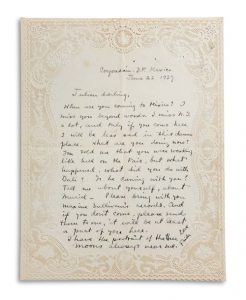 Coyoacan, D.F. Mexico
June 22 1939
Julien darling,
When are you coming to Mexico? I
miss you beyond words. I miss N.Y.
a lot, and only if you come here
I will be less sad in this damn
place. What are you doing now?
You told me that you were working
like hell on the Fair, but what
happened, what did you do with
Dali? Is he coming with you?
Tell me about yourself, about
Muriel. Please bring with you
Maxine Sullivan's records. And
if you don't come, please send
them to me, it will be at least
a part of you here.
I have the portrait of
Moms always near me.